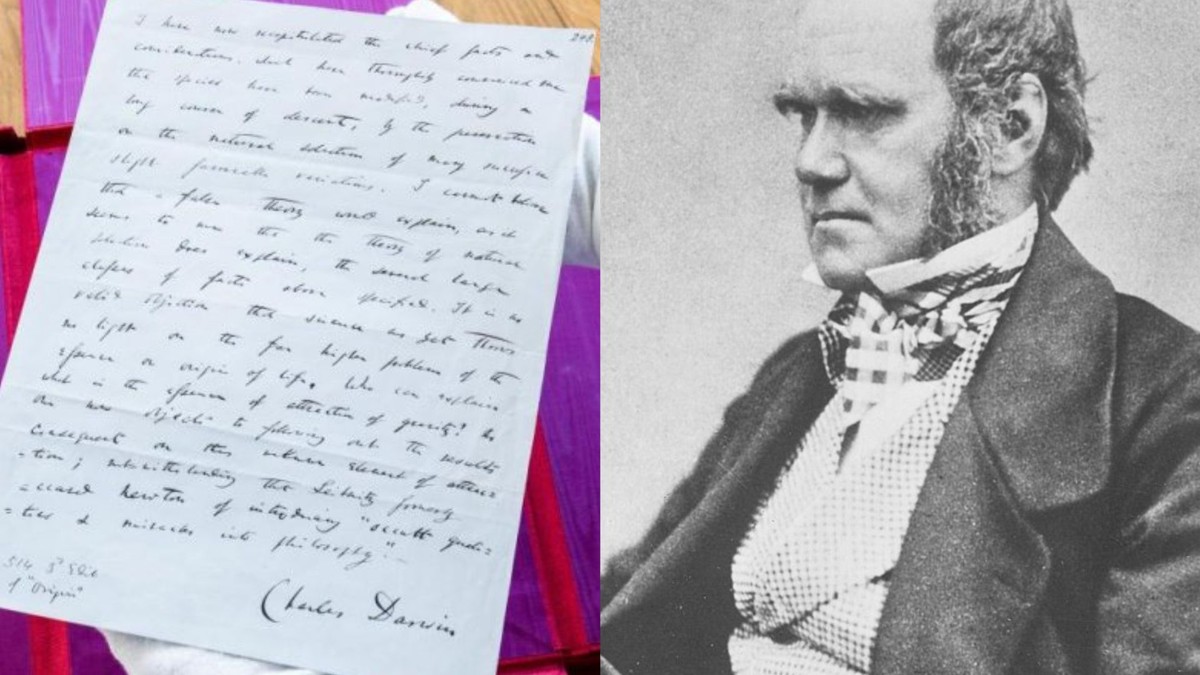 248
I have now recapitulated the chief facts and
considerations, which have thoroughly convinced me
the species have been modified, during a
long course of descent, by the preservation
or the natural selection of many successive
slight favourable variations. I cannot believe
that a false theory would explain, as it
seems to me that the theory of natural
selection does explain, the several large
classes of facts above specified. It is no
valid objection that science as yet throws
no light on the far higher problem of the
essence or origin of life. Who can explain
what is the essence of attraction of gravity? No
one now objects to following out the results
consequent on this unknown element of attrac-
-tion; notwithstanding that Leibnitz formerly
accused Newton of introducing "occult quali-
-ties & miracles into philosophy".—
Charles Darwin
514 3d Edit
of "Origin"